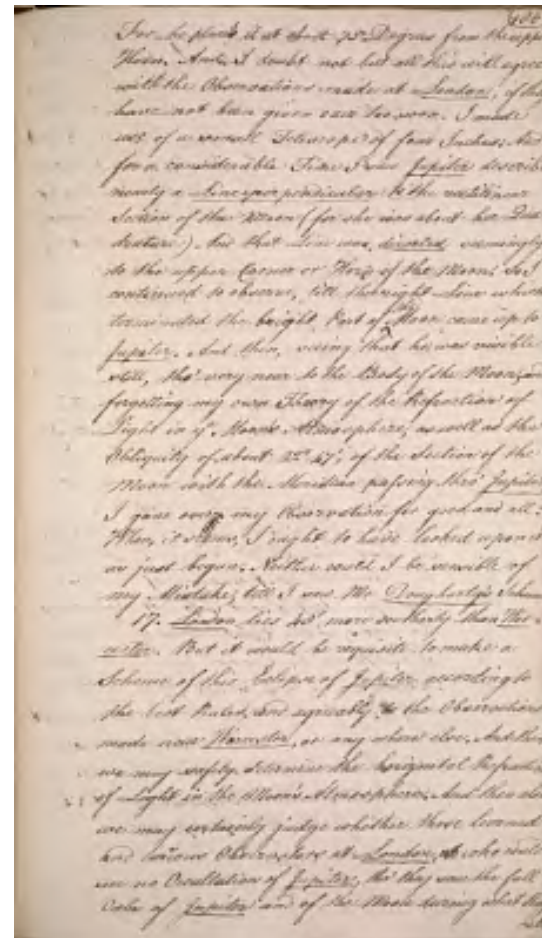 For he placed it at about 75 Degrees from the upper
Horn. And I doubt not but all this will agree
with the Observations made at London, if they
have not been given over too soon. I made
use of a small Telescope of four Inches; And
for a considerable Time I saw Jupiter describe
nearly a Line perpendicular to the rectilinear
Section of the Moon (for she was about her Qua
drature) And that Line was directed seemingly
to the upper Corner or Horn of the Moon. So I
continued to observe, till the right Line which
terminated the bright Part of the Moon came up to
Jupiter. And then, seeing that he was visible
still, tho' very near to the Body of the Moon, and
forgetting my own Theory of the Refraction of
Light in ye. Moon's Atmosphere, as well as the
Obliquity of about 22° 47', of the Section of the
Moon with the Meridian passing thro' Jupiter
I gave over my Observation for good and all:
When, it seems, I ought to have looked upon it
as just begun. Neither could I be sensible of
my Mistake, till I saw Mr Dougharty's Scheme
17. London lies 40' more southerly than Wor-
cester. But it would be requisite to make a
Scheme of this Eclipse of Jupiter according to
the best Rules, and agreeably to the Observations
made near Worcester, or any where else. And then
we may safely determine the horizontal Refraction
of Light in the Moon's Atmosphere. And then also
we may certainly judge whether those learned
and curious Observators at London, who could
see no Occultation of Jupiter, tho' they saw the full
Orbe of Jupiter and of the Moon during what they